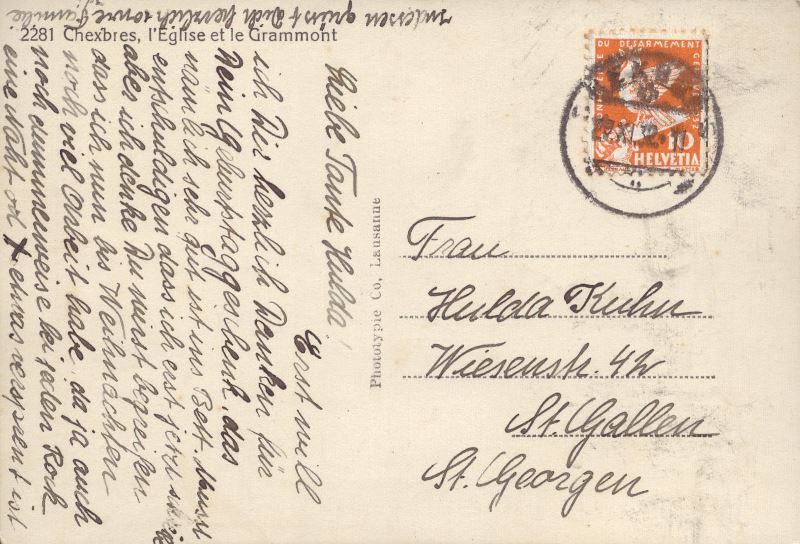 2281 Chexbres, l'Eglise et le Grammont
Liebe Tante Hulda!
Erst will
ich Dir herzlich Danken für
Dein Geburtstaggeschenk, das
nämlich sehr gut ist ins Bett. Musst
entschuldigen dass ich erst jetzt
aber ich denke Du wirst begreifen
dass ich nun bis Weihnachten
noch viel Arbeit habe, da ja auch
noch dummerweise bei jeden Rock
eine Naht od. etwas versprent ist
indessen grüsst Dich herzlich sowie Familie
Phototypie Co, Lausanne
CONFERENCE DU DESARMEMENT GENEVE 1932
10
HELVETIA
Frau
Hulda Kuhn
Wiesenstr. 42
St. Gallen
St. Georgen